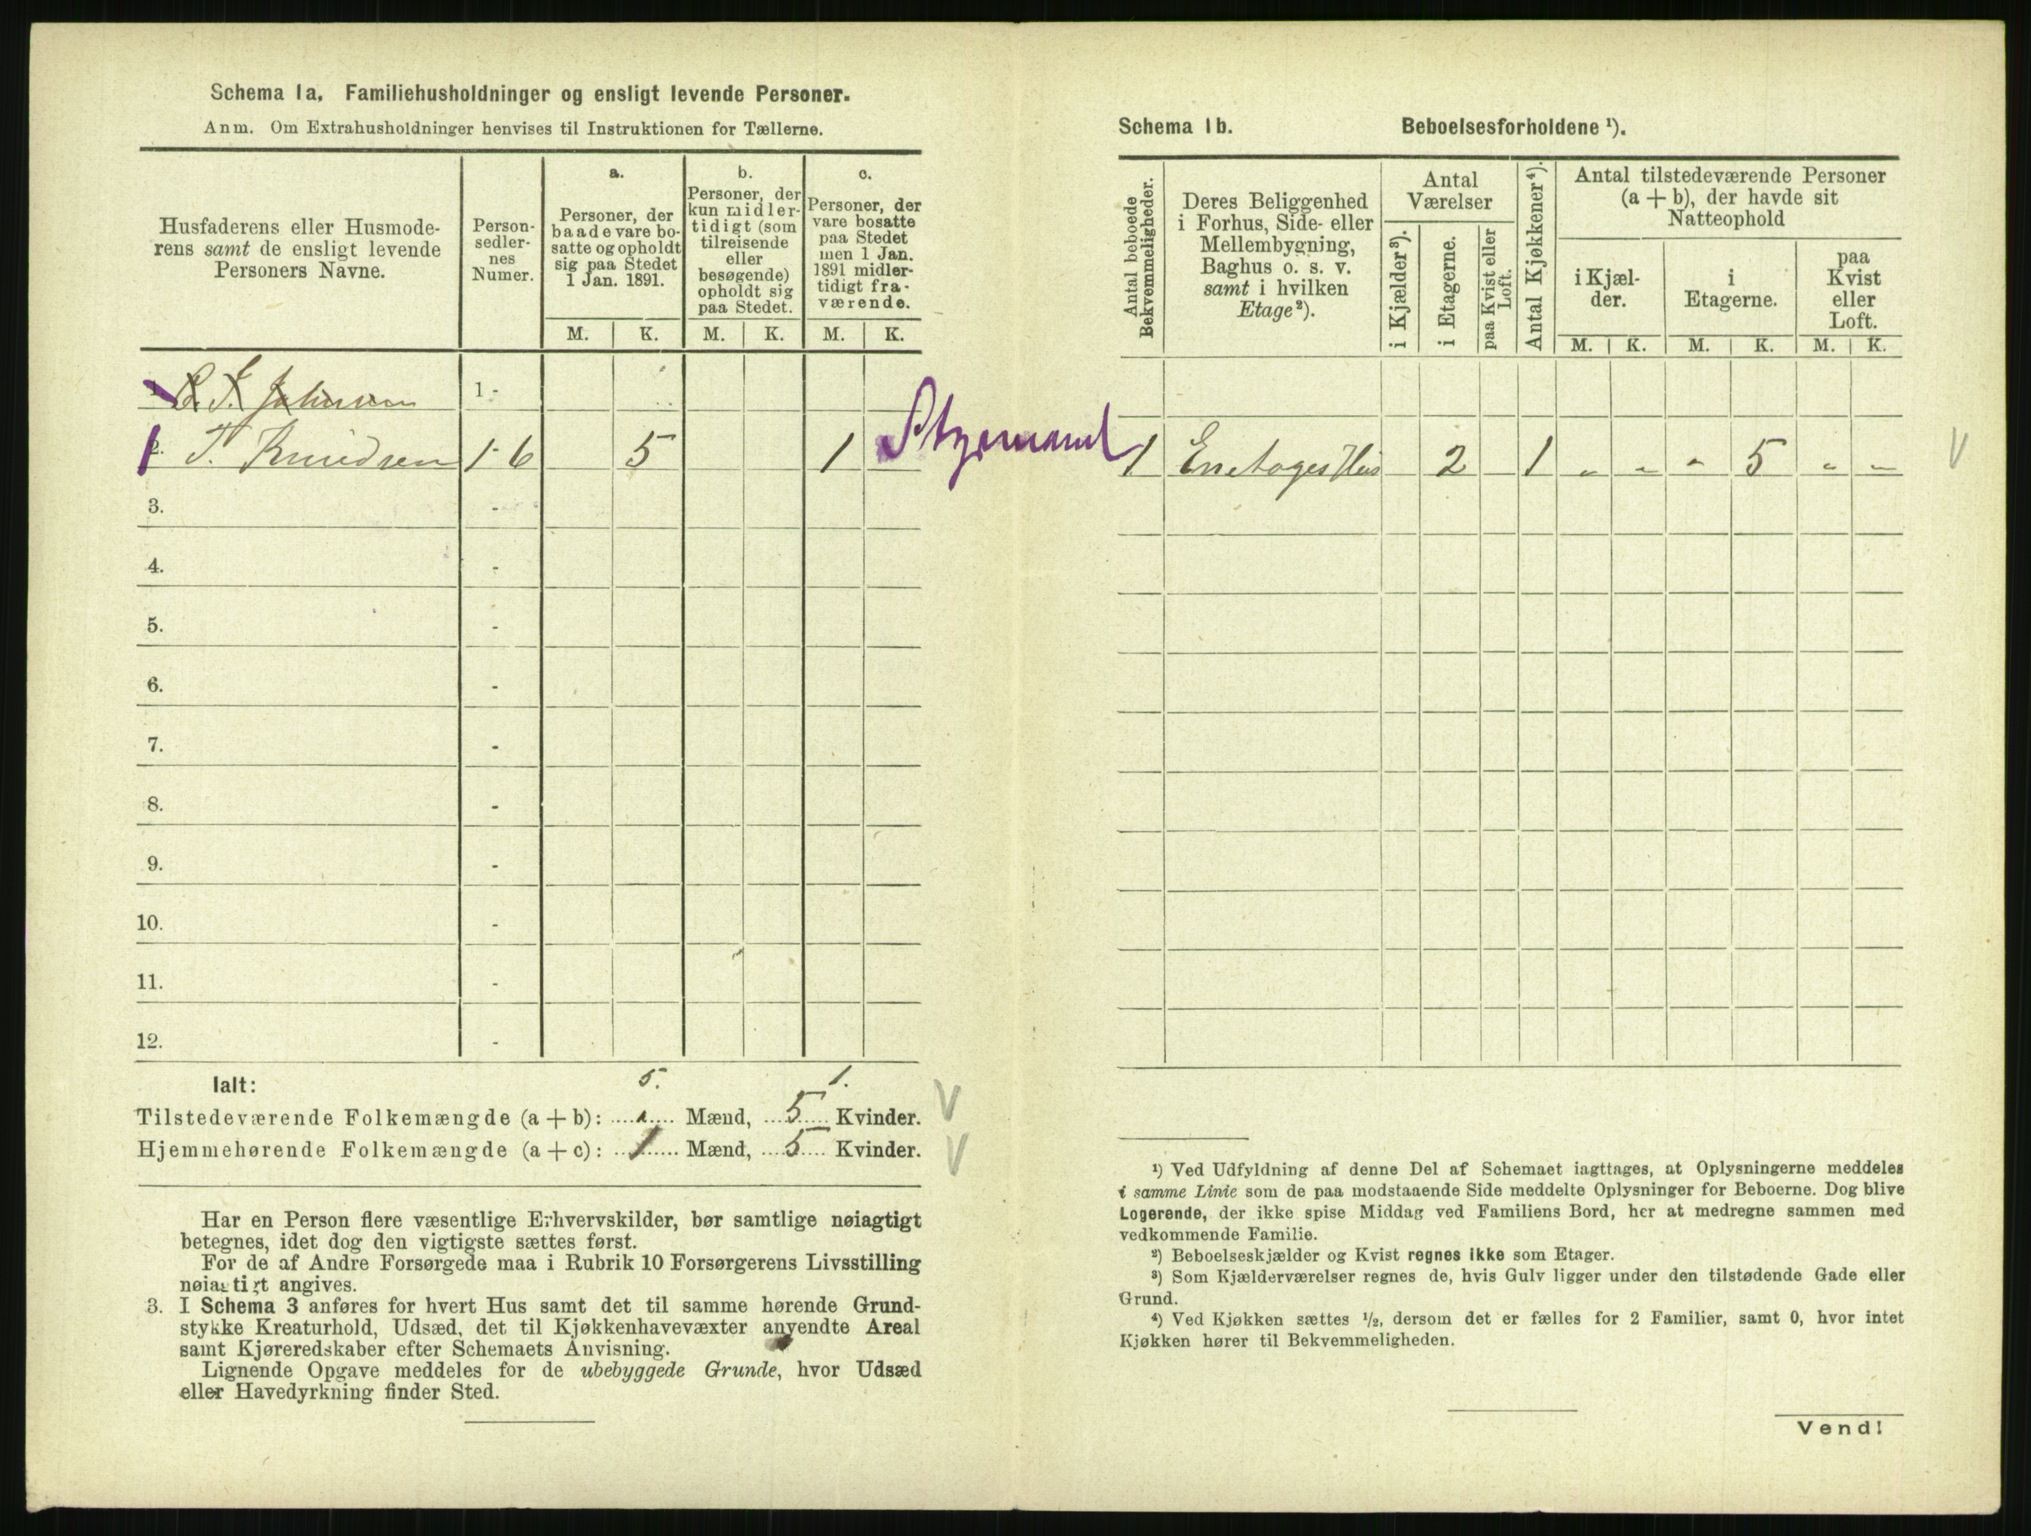 Schema 1a. Familiehusholdninger og ensligt levende Personer.
Anm. Om Extrahusholdninger henvises til Instruktionen for Tællerne.
Husfaderens eller Husmode-
rens samt de ensligt levende
Personers Navne.
Person-
sedler-
nes
Numer.
a.
Personer, der
baade vare bo-
satte og opholdt
sig paa Stedet
1 Jan. 1891.
b.
Personer, der
kun midler-
tidigt (som
tilreisende
eller
besøgende)
opholdt sig
paa Stedet.
c.
Personer, der
vare bosatte
paa Stedet
men 1 Jan.
1891 midler-
tidigt fra-
værende.
M. K. M. K. M. K.
1 -
1 2. T. Knudsen 1-6 5 1 Styrmand
3. -
4. -
5. -
6. -
7. -
8. -
9. -
10. -
11. -
12. -
Ialt: 5. 1.
Tilstedeværende Folkemængde (a + b): Mænd, 5 Kvinder. V
Hjemmehørende Folkemængde (a + c): 1 Mænd, 5 Kvinder. V
Har en Person flere væsentlige Erhvervskilder, bør samtlige nøiagtigt
betegnes, idet dog den vigtigste sættes først.
For de af Andre Forsørgede maa i Rubrik 10 Forsørgerens Livsstilling
nøiagtigt angives.
3. I Schema 3 anføres for hvert Hus samt det til samme hørende Grund-
stykke Kreaturhold, Udsæd, det til Kjøkkenhavevæxter anvendte Areal
samt Kjøreredskaber efter Schemaets Anvisning.
Lignende Opgave meddeles for de ubebyggede Grunde, hvor Udsæd
eller Havedyrkning finder Sted.
Schema 1b. Beboelsesforholdene ¹).
Antal beboede
Bekvemmeligheder.
Deres Beliggenhed
i Forhus, Side- eller
Mellembygning,
Baghus o. s. v.
samt i hvilken
Etage ²).
Antal
Værelser
i Kjælder ³).
i Etagerne.
paa Kvist eller
Loft.
Antal Kjøkkener ⁴).
Antal tilstedeværende Personer
(a + b), der havde sit
Natteophold
i Kjæl-
der.
i
Etagerne.
paa
Kvist
eller
Loft.
M. K. M. K. M. K.
1 En etages Hus 2 1 " " " 5 " " V
¹) Ved Udfyldning af denne Del af Schemaet iagttages, at Oplysningerne meddeles
i samme Linie som de paa modstaaende Side meddelte Oplysninger for Beboerne. Dog blive
Logerende, der ikke spise Middag ved Familiens Bord, her at medregne sammen med
vedkommende Familie.
²) Beboelseskjælder og Kvist regnes ikke som Etager.
³) Som Kjælderværelser regnes de, hvis Gulv ligger under den tilstødende Gade eller
Grund.
⁴) Ved Kjøkken sættes ½, dersom det er fælles for 2 Familier, samt 0, hvor intet
Kjøkken hører til Bekvemmeligheden.
Vend!